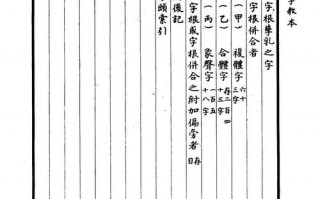 字教本
字根孳乳之字
字根併合者
（甲）複體字六十三字
（乙）合體字存二百四十三字
（丙）象聲字一百五十八字
字根或字根併合之附加偏旁者存目
後記
頭索引